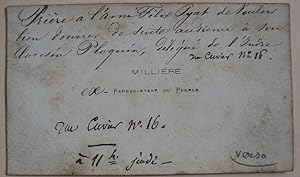 Prière à l'ami Félix Pyat de vouloir
bien donner de suite audience à son
Ploquin, Délégué de l'Indre
rue Cuvier Nº 16.
MILLIÈRE
ex- REPRÉSENTANT DU PEUPLE
rue Cuvier Nº 16.
à 11 h. jeudi -
verso